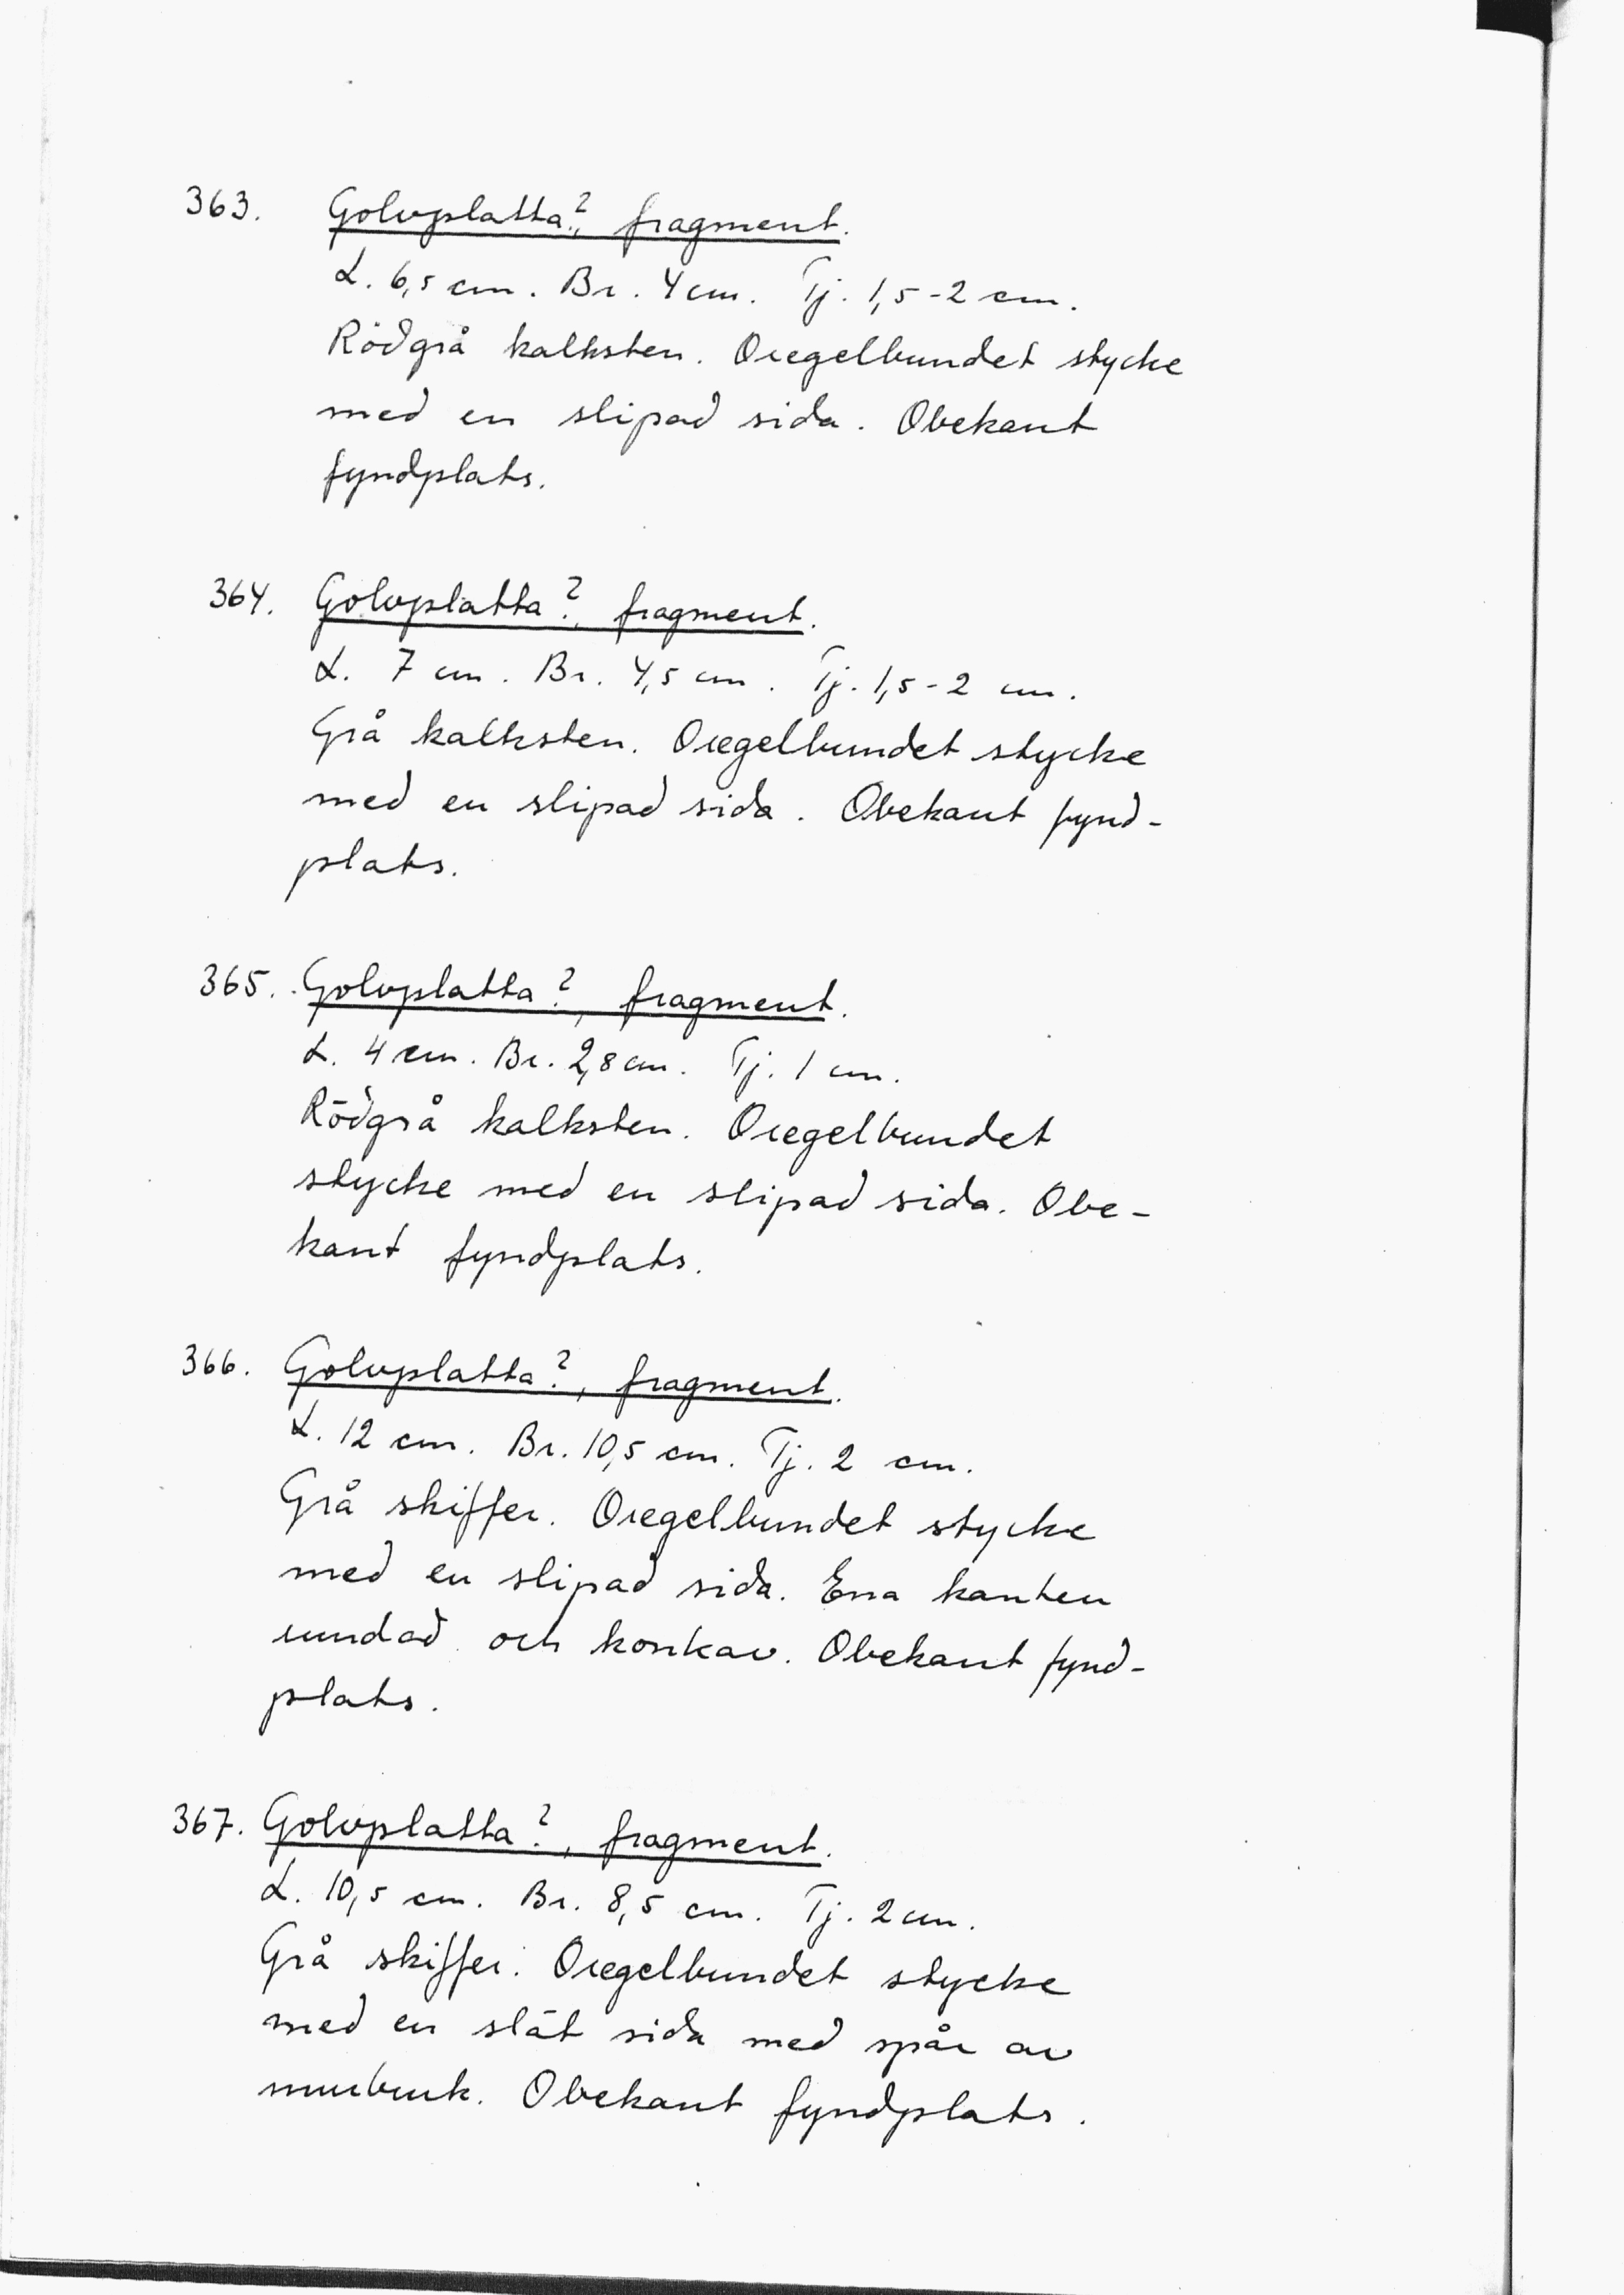 363. Golvplatta?, fragment.
L. 6,5 cm. Br. 4 cm. Tj. 1,5-2 cm.
Rödgrå kalksten. Oregelbundet stycke
med en slipad sida. Obekant
fyndplats.
364. Golvplatta?, fragment.
L. 7 cm. Br. 4,5 cm. Tj. 1,5-2 cm.
Grå kalksten. Oregelbundet stycke
med en slipad sida. Obekant fynd-
plats.
365. Golvplatta?, fragment.
L. 4 cm. Br. 2,8 cm. Tj. 1 cm.
Rödgrå kalksten. Oregelbundet
stycke med en slipad sida. Obe-
kant fyndplats.
366. Golvplatta?, fragment.
L. 12 cm. Br. 10,5 cm. Tj. 2 cm.
Grå skiffer. Oregelbundet stycke
med en slipad sida. Ena kanten
rundad och konkav. Obekant fynd-
plats.
367. Golvplatta?, fragment.
L. 10,5 cm. Br. 8,5 cm. Tj. 2 cm.
Grå skiffer. Oregelbundet stycke
med en slät sida med spår av
murbruk. Obekant fyndplats.